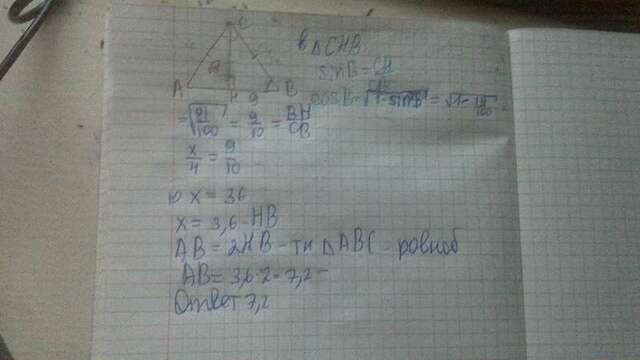 C
A H B
9
в △CHB
sinB = CH
cosB = √1-sin²B = √1-19/100
= √81/100 = 9/10 = BH/CB
x/4 = 9/10
10 x = 36
x = 3,6 - HB
AB = 2HB - тк △ABC - равноб
AB = 3,6·2 = 7,2
Ответ 7,2